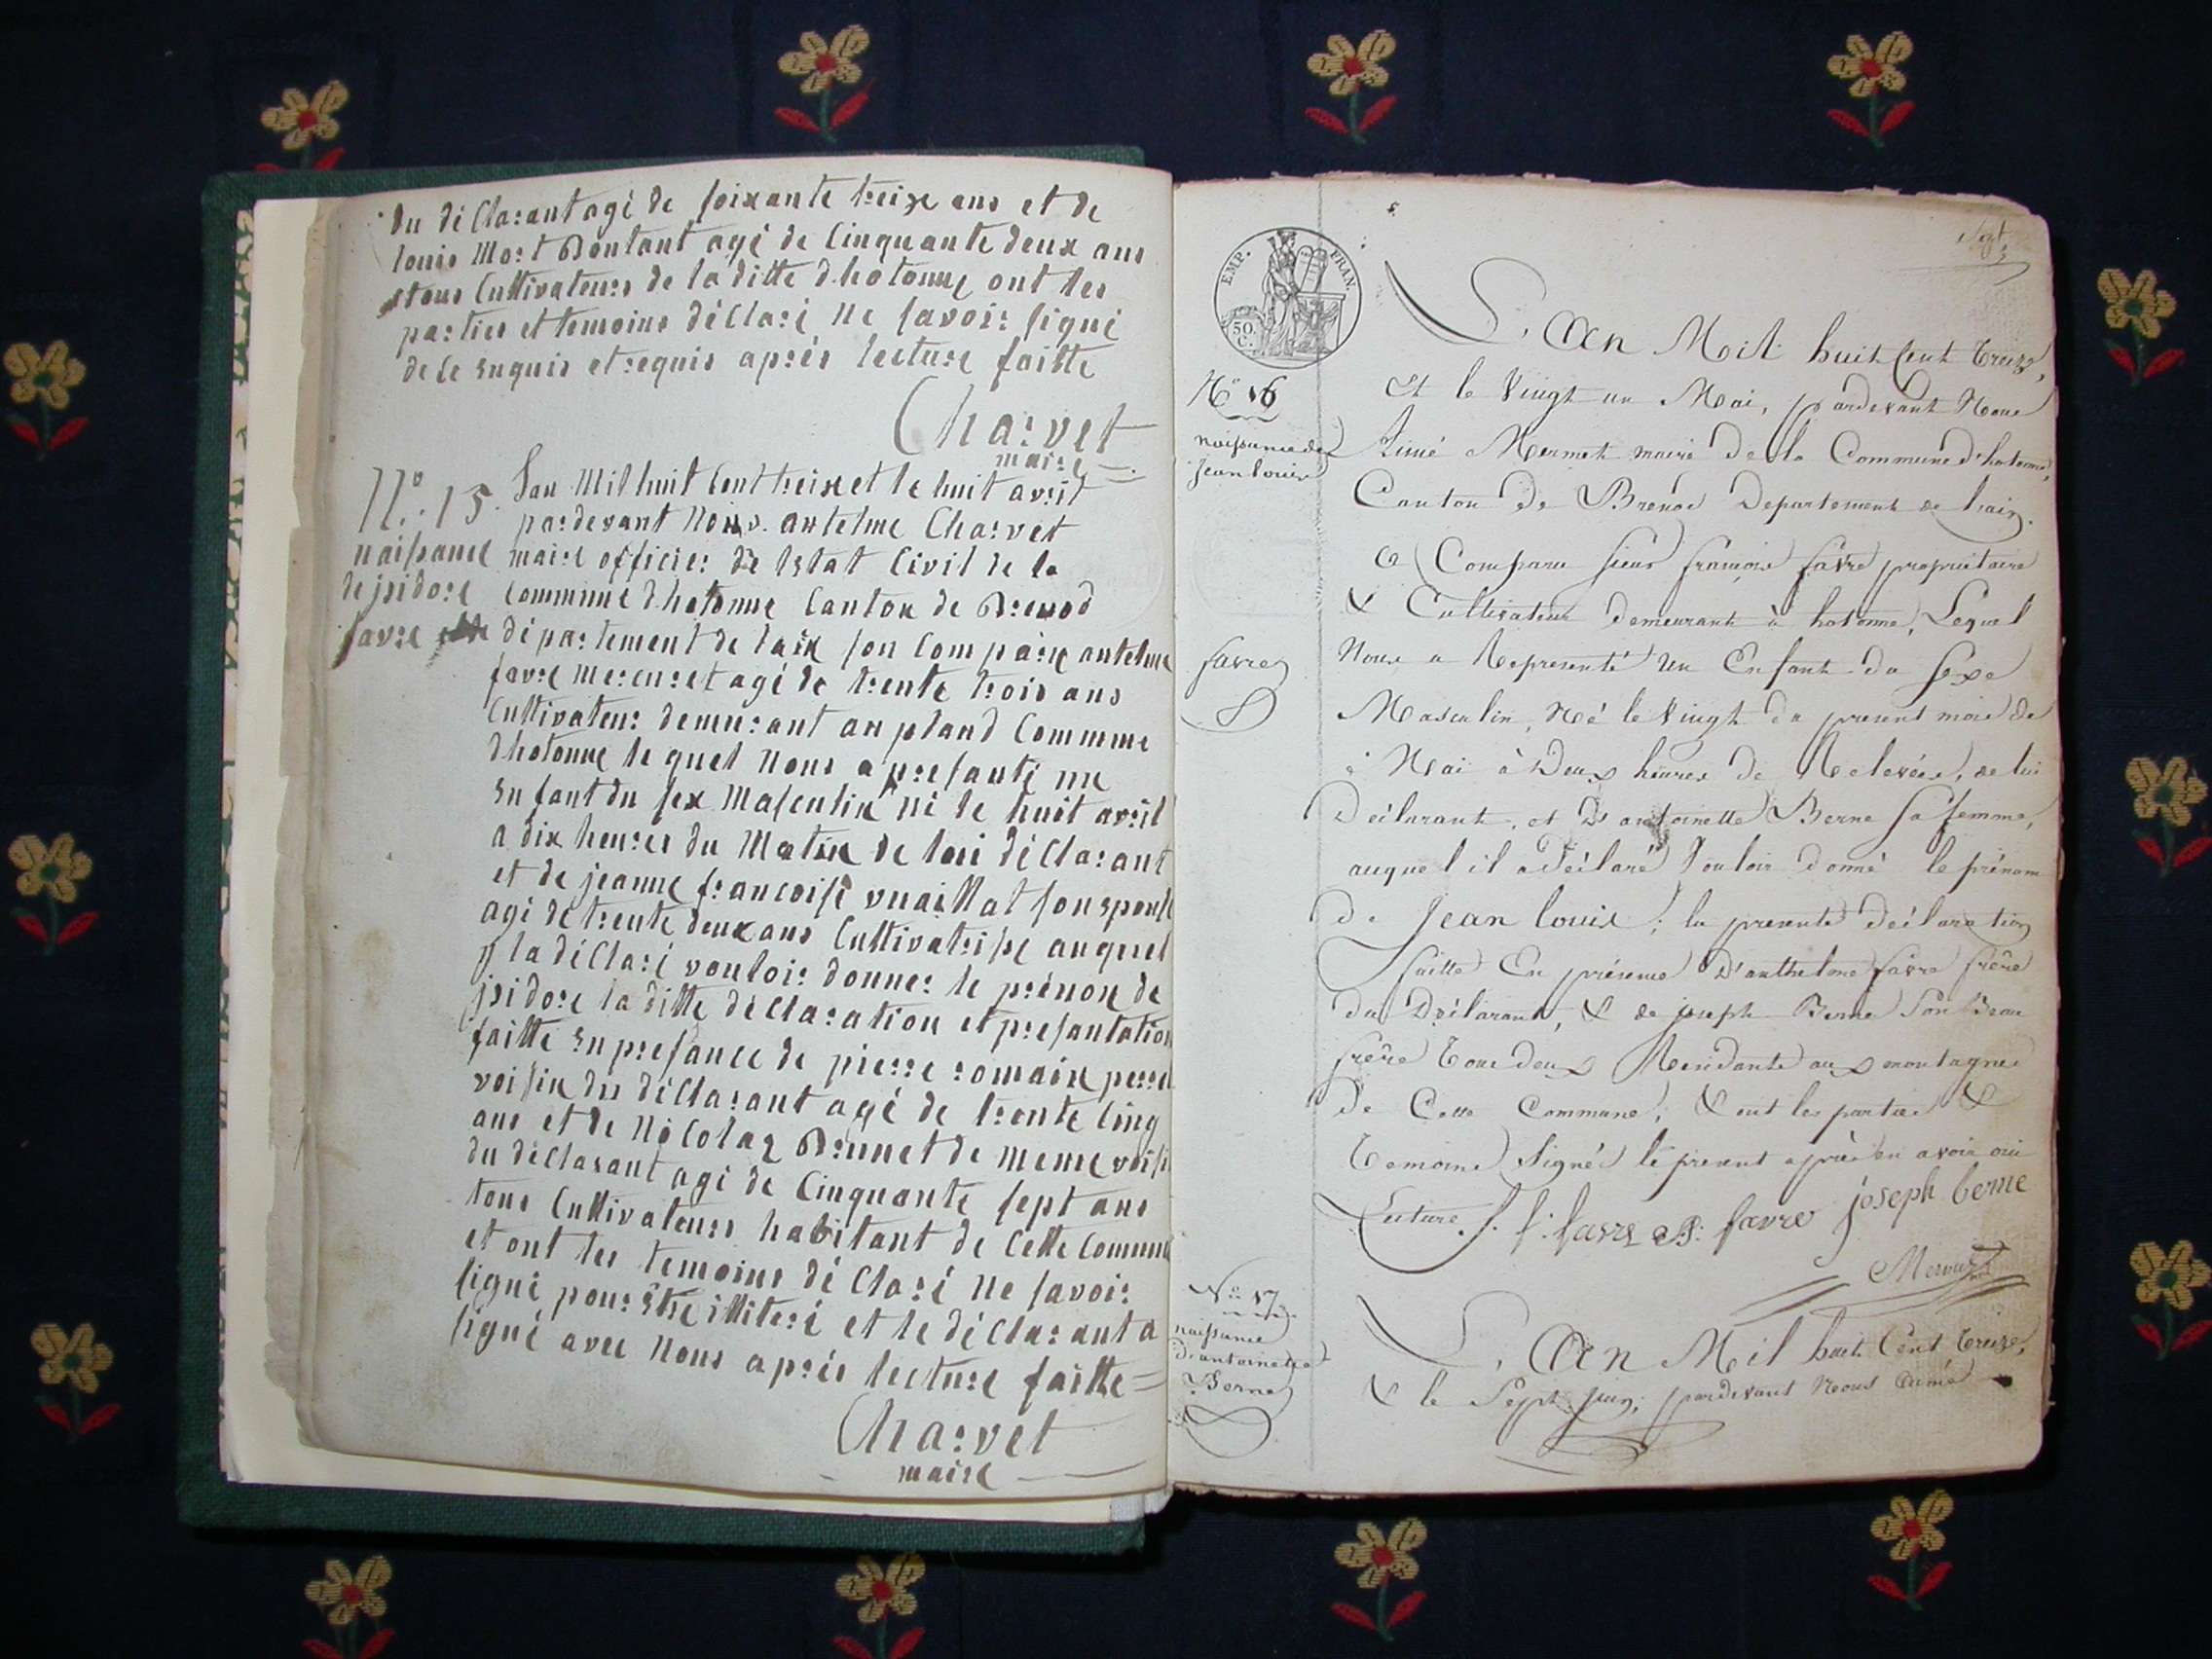 du déclarant agé de soixante treize ans et de
louis Mort Bontant agé de Cinquante deux ans
tous Cultivateurs de la ditte dhotonne ont les
parties et temoins déclaré ne savoir signé
de ce enquis et requis après lecture faitte
Charvet
maire
N.º 15.
naissance
de jsidore
favre
Lan Mil huit Cent treize et le huit avril
pardevant Nous. antelme Charvet
maire officier de lstat Civil de la
commune dhotonne Canton de Brenod
département de lain son Comparu antelme
favre mercuret agé de trente trois ans
Cultivateur demeurant au pland Commune
dhotonne le quel nous a presanté un
enfant du sex Masculin né le huit avril
a dix heures du Matin de lui déclarant
et de jeanne francoise vuaillat son spouse
agé de trente deux ans Cultivatrise auquel
jl a déclaré vouloir donner le prénon de
jsidore la ditte déclaration et presantation
faitte en presance de pierre romain perre
voisin du déclarant agé de trente Cinq
ans et de Nicolaz Brunet de meme voisi
du déclarant agé de Cinquante sept ans
tous Cultivateurs habitant de Cette Commune
et ont les temoins déclaré ne savoir
signé pour être illiteré et le déclarant a
signé avec nous après lecture faitte =
Charvet
maire
EMP. FRAN.
50.
C.
Sept
Nº 16
naissance de
jean louis
favre
L'an Mil huit Cent treize,
Et le Vingt un Mai, pardevant Nous
Aimé Mermet maire de la Commune d'hotonne,
Canton de Brenod Departement de lain.
a Comparu sieur françois favre propriétaire
& Cultivateur demeurant à hotonne, Lequel
Nous a Representé un Enfant du sexe
Masculin, Né le Vingt du present mois de
Mai à Deux heures de Relevée, de lui
Déclarant, et D'antoinette Berne sa femme,
auquel il a déclaré Vouloir donné le prénom
de Jean louis; la presente déclaration
faitte En présence D'anthelme favre frère
du Déclarant, & de joseph Berne son Beau
frère tous deux Residants aux montagnes
de Cette Commune; & ont les parties &
temoins signé le present après en avoir oui
Lecture. f. favre A: favre joseph berne
Mermet
Nº 17
naissance
d'antoinette
Berne
L'an Mil huit Cent treize,
& le Sept juin, pardevant Nous Aimé